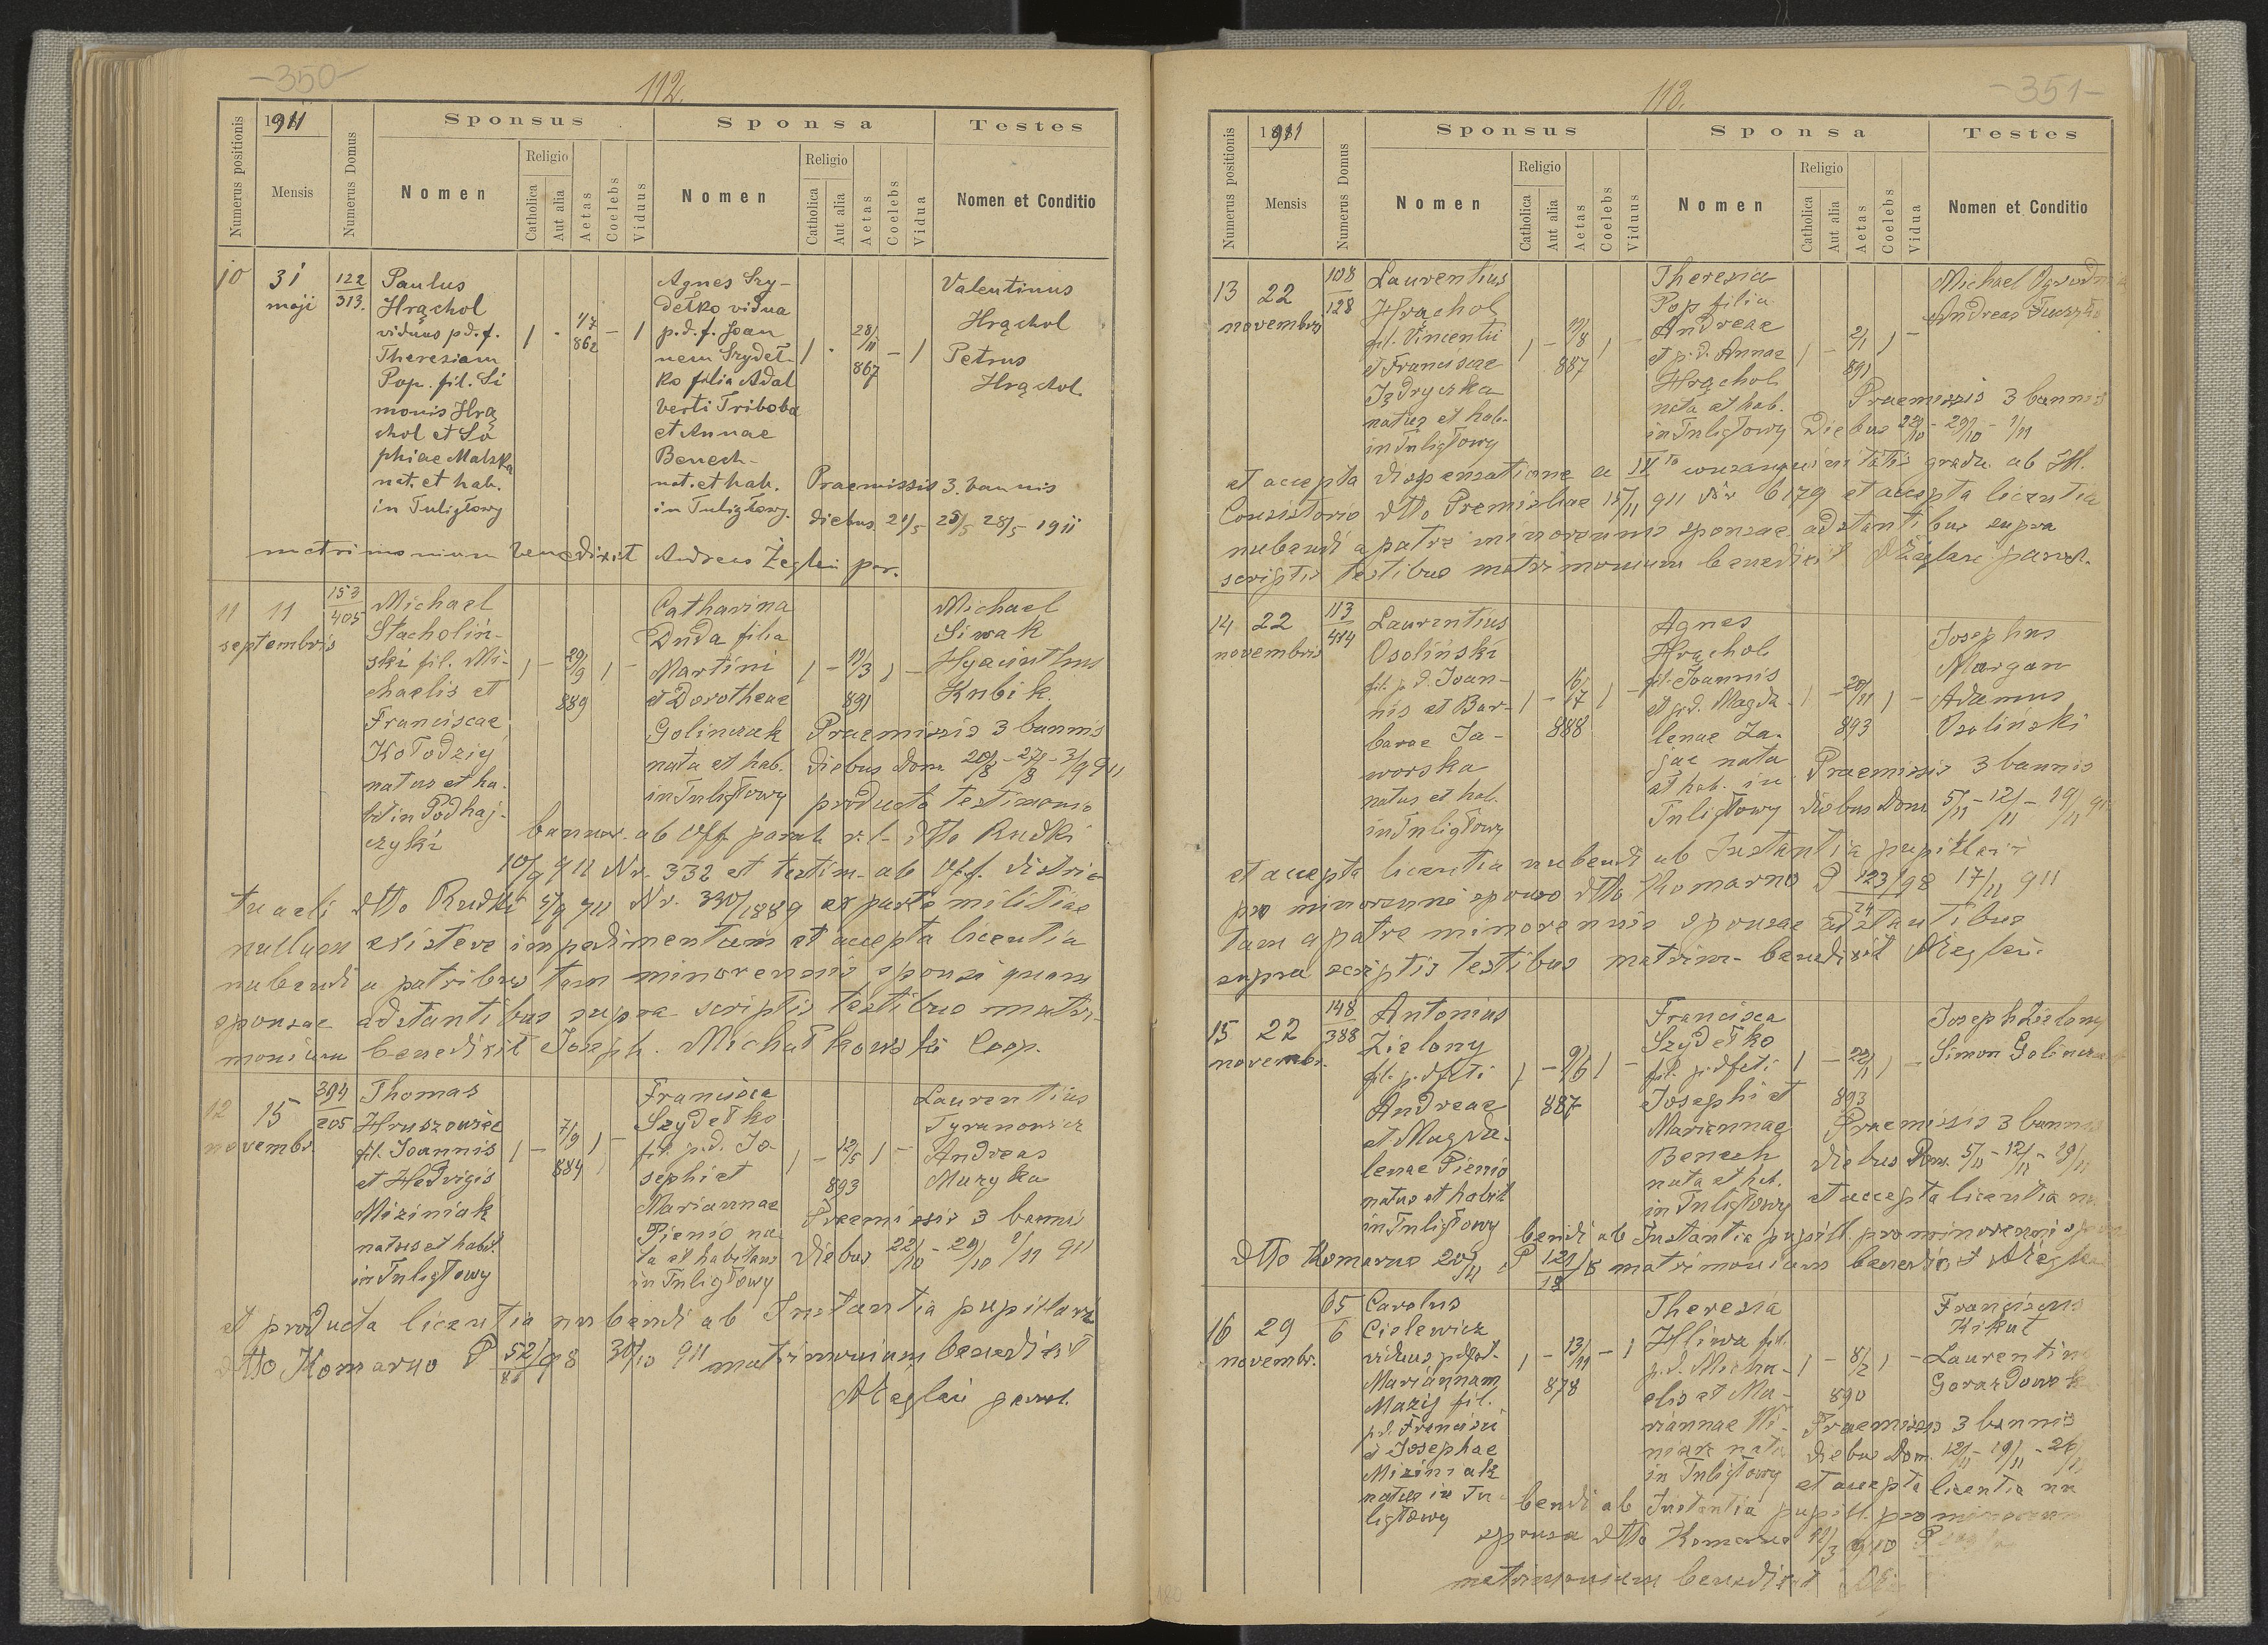 -350-
112.
Numerus positionis
1911
Mensis
Numerus Domus
Sponsus
Sponsa
Testes
Nomen
Religio
Catholica
Aut alia
Aetas
Coelebs
Viduus
Nomen
Religio
Catholica
Aut alia
Aetas
Coelebs
Vidua
Nomen et Conditio
10
31
maji
122
313.
Paulus
Hrąchol
viduus p.d.f.
Theresiam
Pop. fil. Si
monis Hrą
chol et So
phiae Malska
nat. et hab.
in Tuligłowy
1 - 4/7 862 - 1
Agnes Szy-
dełko vidua
p.d.f. Joan
nem Szydeł-
ko filia Adal
berti Triboba
et Annae
Benech-
nat. et hab.
in Tuligłowy.
1 - 28/11 867 - 1
Valentinus
Hrąchol
Petrus
Hrąchol
Praemissis 3. bannis
diebus 21/5 25/5 28/5 1911
matrimonium benedixit Andreas Żeglin par.
11
11
septembris
153
405
Michael
Stacholiń-
ski fil. Mi-
chaelis et
Franciscae
Kołodziy
natus et ha.
bit in Podhaj-
czyki
1 - 29/9 889 1 -
Catharina
Duda filia
Martini
et Dorotheae
Golinczak
nata et hab.
in Tuligłowy
1 - 19/3 891 1 -
Michael
Siwak
Hyacinthus
Kubik
Praemissis 3 bannis
diebus Dom 20/8 - 27/8 - 3/9 911
producto testimonio
bannor. ab Off. paroch r. l. dtto Rudki
10/9 911 Nr. 332 et testim. ab Off. distric
tuali dtto Rudki 5/9 911 Nr. 390/1889 ex parte militiae
nullum existere impedimentum et accepta licentia
nubendi a patribus tam minorennis sponsi quam
sponsae adstantibus supra scriptis testibus matri-
monium benedixit Joseph. Michałkowski Coop.
12
15
novembr.
394
205
Thomas
Hruszowiec
fil. Joannis
et Hedvigis
Miziniak
natus et habit.
in Tuligłowy
1 - 7/9 884 1 -
Francisca
Szydełko
fil. p.d. Jo-
sephi et
Mariannae
Pienio na
ta et habitans
in Tuligłowy
1 - 12/5 893 1 -
Laurentius
Tyranowicz
Andreas
Muzyka
Praemissis 3 bannis
diebus 22/10 - 29/10 1/11 911
et producta licentia nubendi ab Instantia pupillari
dtto Komarno P 52/98 30/10 911 matrimonium benedixit
paroch.
-351-
113.
Numerus positionis
1911
Mensis
Numerus Domus
Sponsus
Sponsa
Testes
Nomen
Religio
Catholica
Aut alia
Aetas
Coelebs
Viduus
Nomen
Religio
Catholica
Aut alia
Aetas
Coelebs
Vidua
Nomen et Conditio
13
22
novembris
108
128
Laurentius
Hrąchol
fil. Vincentii
et Franciscae
Jędryszka
natus et hab.
in Tuligłowy
887 1 -
Theresia
Pop filia
Andreae
et p.d. Annae
Hrąchol
nata et hab.
in Tuligłowy
1 - 2/1 891 1 -
Michael
Andreas
Praemissis 3 bannis
Diebus 22/10 - 29/10 - 1/11
et accepta dispensatione a IV to consanguinitatis gradu ab Ill.
Consistorio dtto Premisliae 15/11 911 Nr 6179 et accepta licentia
nubendi a patre minorennis sponsae adstantibus supra
scriptis testibus matrimonium benedixit AŻeglin paroch.
14
22
novembris
113
414
Laurentius
Osoliński
fil. p.d. Joan-
nis et Bar-
barae Ja-
worska
natus et hab.
in Tuligłowy
1 - 888 1 -
Agnes
Hrąchol
fil. Joannis
et p.d. Magda
lenae Za-
jac nata
et hab. in
Tuligłowy
1 - 20/11 893 1 -
Josephus
Margan
Adamus
Osoliński
Praemissis 3 bannis
diebus Dom 5/11 - 12/11 - 19/11
et accepta licentia nubendi ab Instantia pupillari
pro minorenni sponso dtto Komarno P 123/98 17/11 911
tam a patre minorennis sponsae adstantibus
supra scriptis testibus matrim. benedixit AŻeglin.
15
22
novembr.
148
388
Antonius
Zielony
fil. p.dfcti
Andreae
et Magda-
lenae Pienio
natus et habit
in Tuligłowy
1 - 9/6 887 1 -
Francisca
Szydełko
fil. p.dfcti
Josephi et
Mariannae
Benech
nata et hab.
in Tuligłowy
1 - 893 1 -
Joseph Zielony
Simon
Praemissis 3 bannis
diebus Dom. 5/11 - 12/11 - 19/11
et accepta licentia nu
bendi ab Instantia pupill. pro minorenni
dtto Komarno 20/11 matrimonium benedixit
16
29
novembr.
65
6
Carolus
Cielewicz
viduus
Mariannam
Maziy fil.
p.d. Francisci
et Josephae
Miziniak
natus in Tu-
ligłowy
1 - 13/11 878 - 1
Theresia
Hliwa fil.
p.d. Micha-
elis et Ma-
riannae
nata
in Tuligłowy
1 - 8/2 890 1 -
Franciscus
Kikut
Laurentius
Praemissis 3 bannis
diebus Dom. 12/11 - 19/11 - 26/11
et accepta licentia nu
bendi ab Instantia pupill. pro
sponsa dtto Komarno
matrimonium benedixit